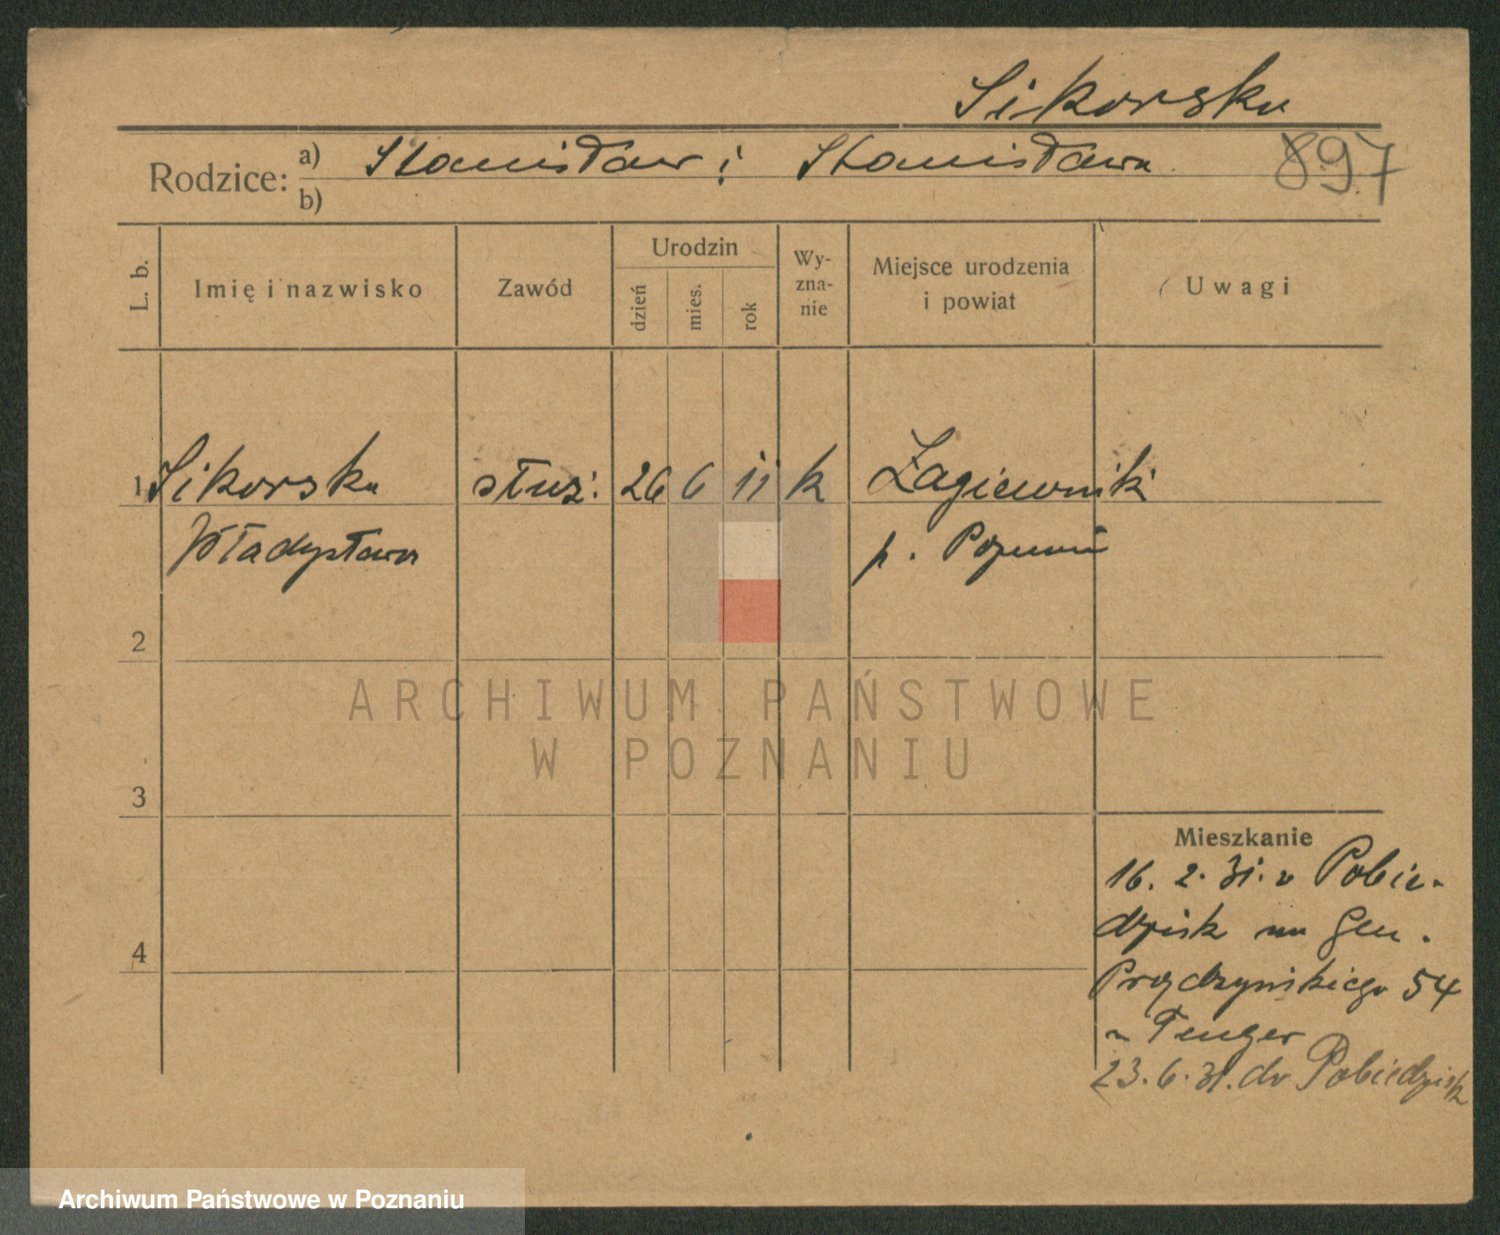 Sikorska
Rodzice: a) Stanisław i Stanisława 897
b)
L. b. Imię i nazwisko Zawód Urodzin dzień mies. rok Wy-zna-nie Miejsce urodzenia i powiat Uwagi
1 Sikorska służ. 26 6 11 k Łagiewniki
Władysława p. Poznań
2
3
4
Mieszkanie
16. 2. 31. z Pobie-
dzisk na Gen.
Prądzyńskiego 54
23. 6. 31. do Pobiedzisk
ARCHIWUM PAŃSTWOWE
W POZNANIU
Archiwum Państwowe w Poznaniu